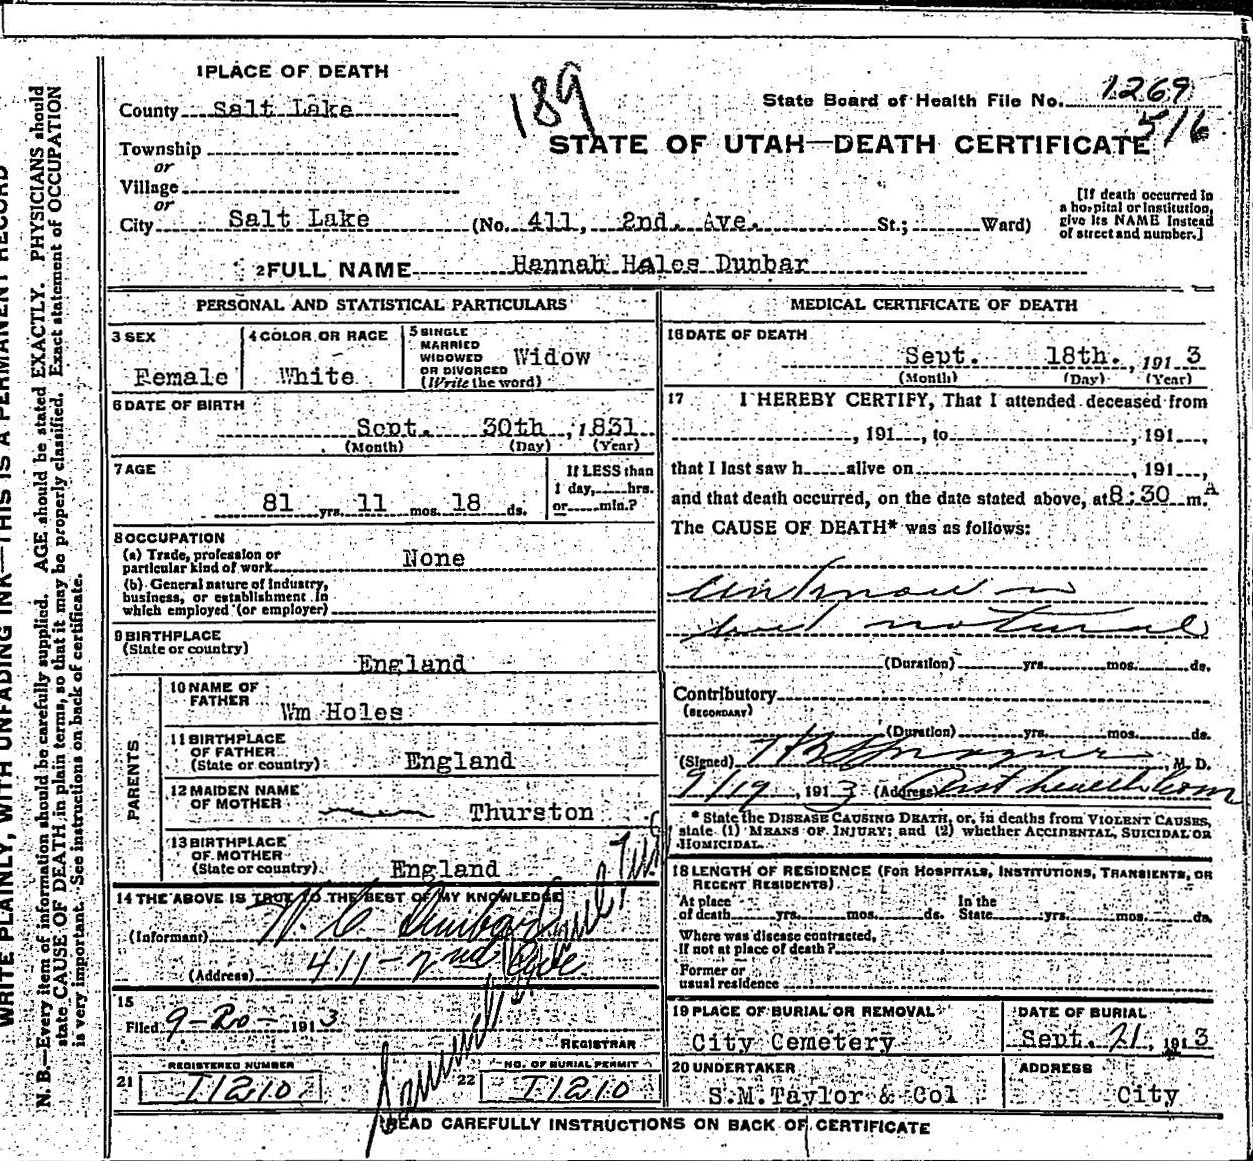 1 PLACE OF DEATH
County Salt Lake
Township
or
Village
or
City Salt Lake (No. 411, 2nd. Ave. St.; Ward)
189
State Board of Health File No. 1269
516
STATE OF UTAH—DEATH CERTIFICATE
[If death occurred in
a hospital or institution,
give its NAME instead
of street and number.]
2 FULL NAME Hannah Hales Dunbar
PERSONAL AND STATISTICAL PARTICULARS
3 SEX
Female
4 COLOR OR RACE
White
5 SINGLE
MARRIED
WIDOWED
OR DIVORCED
(Write the word)
Widow
6 DATE OF BIRTH
Sept. 30th, 1831
(Month) (Day) (Year)
7 AGE
81 yrs. 11 mos. 18 ds.
If LESS than
1 day, hrs.
or min.?
8 OCCUPATION
(a) Trade, profession or
particular kind of work None
(b) General nature of Industry,
business, or establishment in
which employed (or employer)
9 BIRTHPLACE
(State or country)
England
PARENTS
10 NAME OF
FATHER
Wm Holes
11 BIRTHPLACE
OF FATHER
(State or country) England
12 MAIDEN NAME
OF MOTHER Thurston
13 BIRTHPLACE
OF MOTHER
(State or country) England
14 THE ABOVE IS TRUE TO THE BEST OF MY KNOWLEDGE
(Informant) W. C. Dunbar
(Address) 411 - 2nd Ave
15
Filed 9-20- 1913
REGISTRAR
REGISTERED NUMBER
21 I1210
NO. OF BURIAL PERMIT
22 I1210
MEDICAL CERTIFICATE OF DEATH
16 DATE OF DEATH
Sept. 18th., 1913
(Month) (Day) (Year)
17 I HEREBY CERTIFY, That I attended deceased from
, 191 , to , 191 ,
that I last saw h alive on , 191 ,
and that death occurred, on the date stated above, at 8:30 m. A
The CAUSE OF DEATH* was as follows:
unknown
but natural
(Duration) yrs. mos. ds.
Contributory
(SECONDARY)
(Duration) yrs. mos. ds.
(Signed) M. D.
9/19, 1913 (Address) health Com
* State the DISEASE CAUSING DEATH, or, in deaths from VIOLENT CAUSES,
state (1) MEANS OF INJURY; and (2) whether ACCIDENTAL, SUICIDAL OR
HOMICIDAL.
18 LENGTH OF RESIDENCE (FOR HOSPITALS, INSTITUTIONS, TRANSIENTS, OR
RECENT RESIDENTS)
At place In the
of death yrs. mos. ds. State yrs. mos. ds.
Where was disease contracted,
If not at place of death?
Former or
usual residence
19 PLACE OF BURIAL OR REMOVAL
City Cemetery
DATE OF BURIAL
Sept. 21, 1913
20 UNDERTAKER
S.M.Taylor & Co
ADDRESS
City
READ CAREFULLY INSTRUCTIONS ON BACK OF CERTIFICATE
WRITE PLAINLY, WITH UNFADING INK—THIS IS A PERMANENT RECORD
N. B.—Every item of information should be carefully supplied. AGE should be stated EXACTLY. PHYSICIANS should
state CAUSE OF DEATH in plain terms, so that it may be properly classified. Exact statement of OCCUPATION
is very important. See instructions on back of certificate.